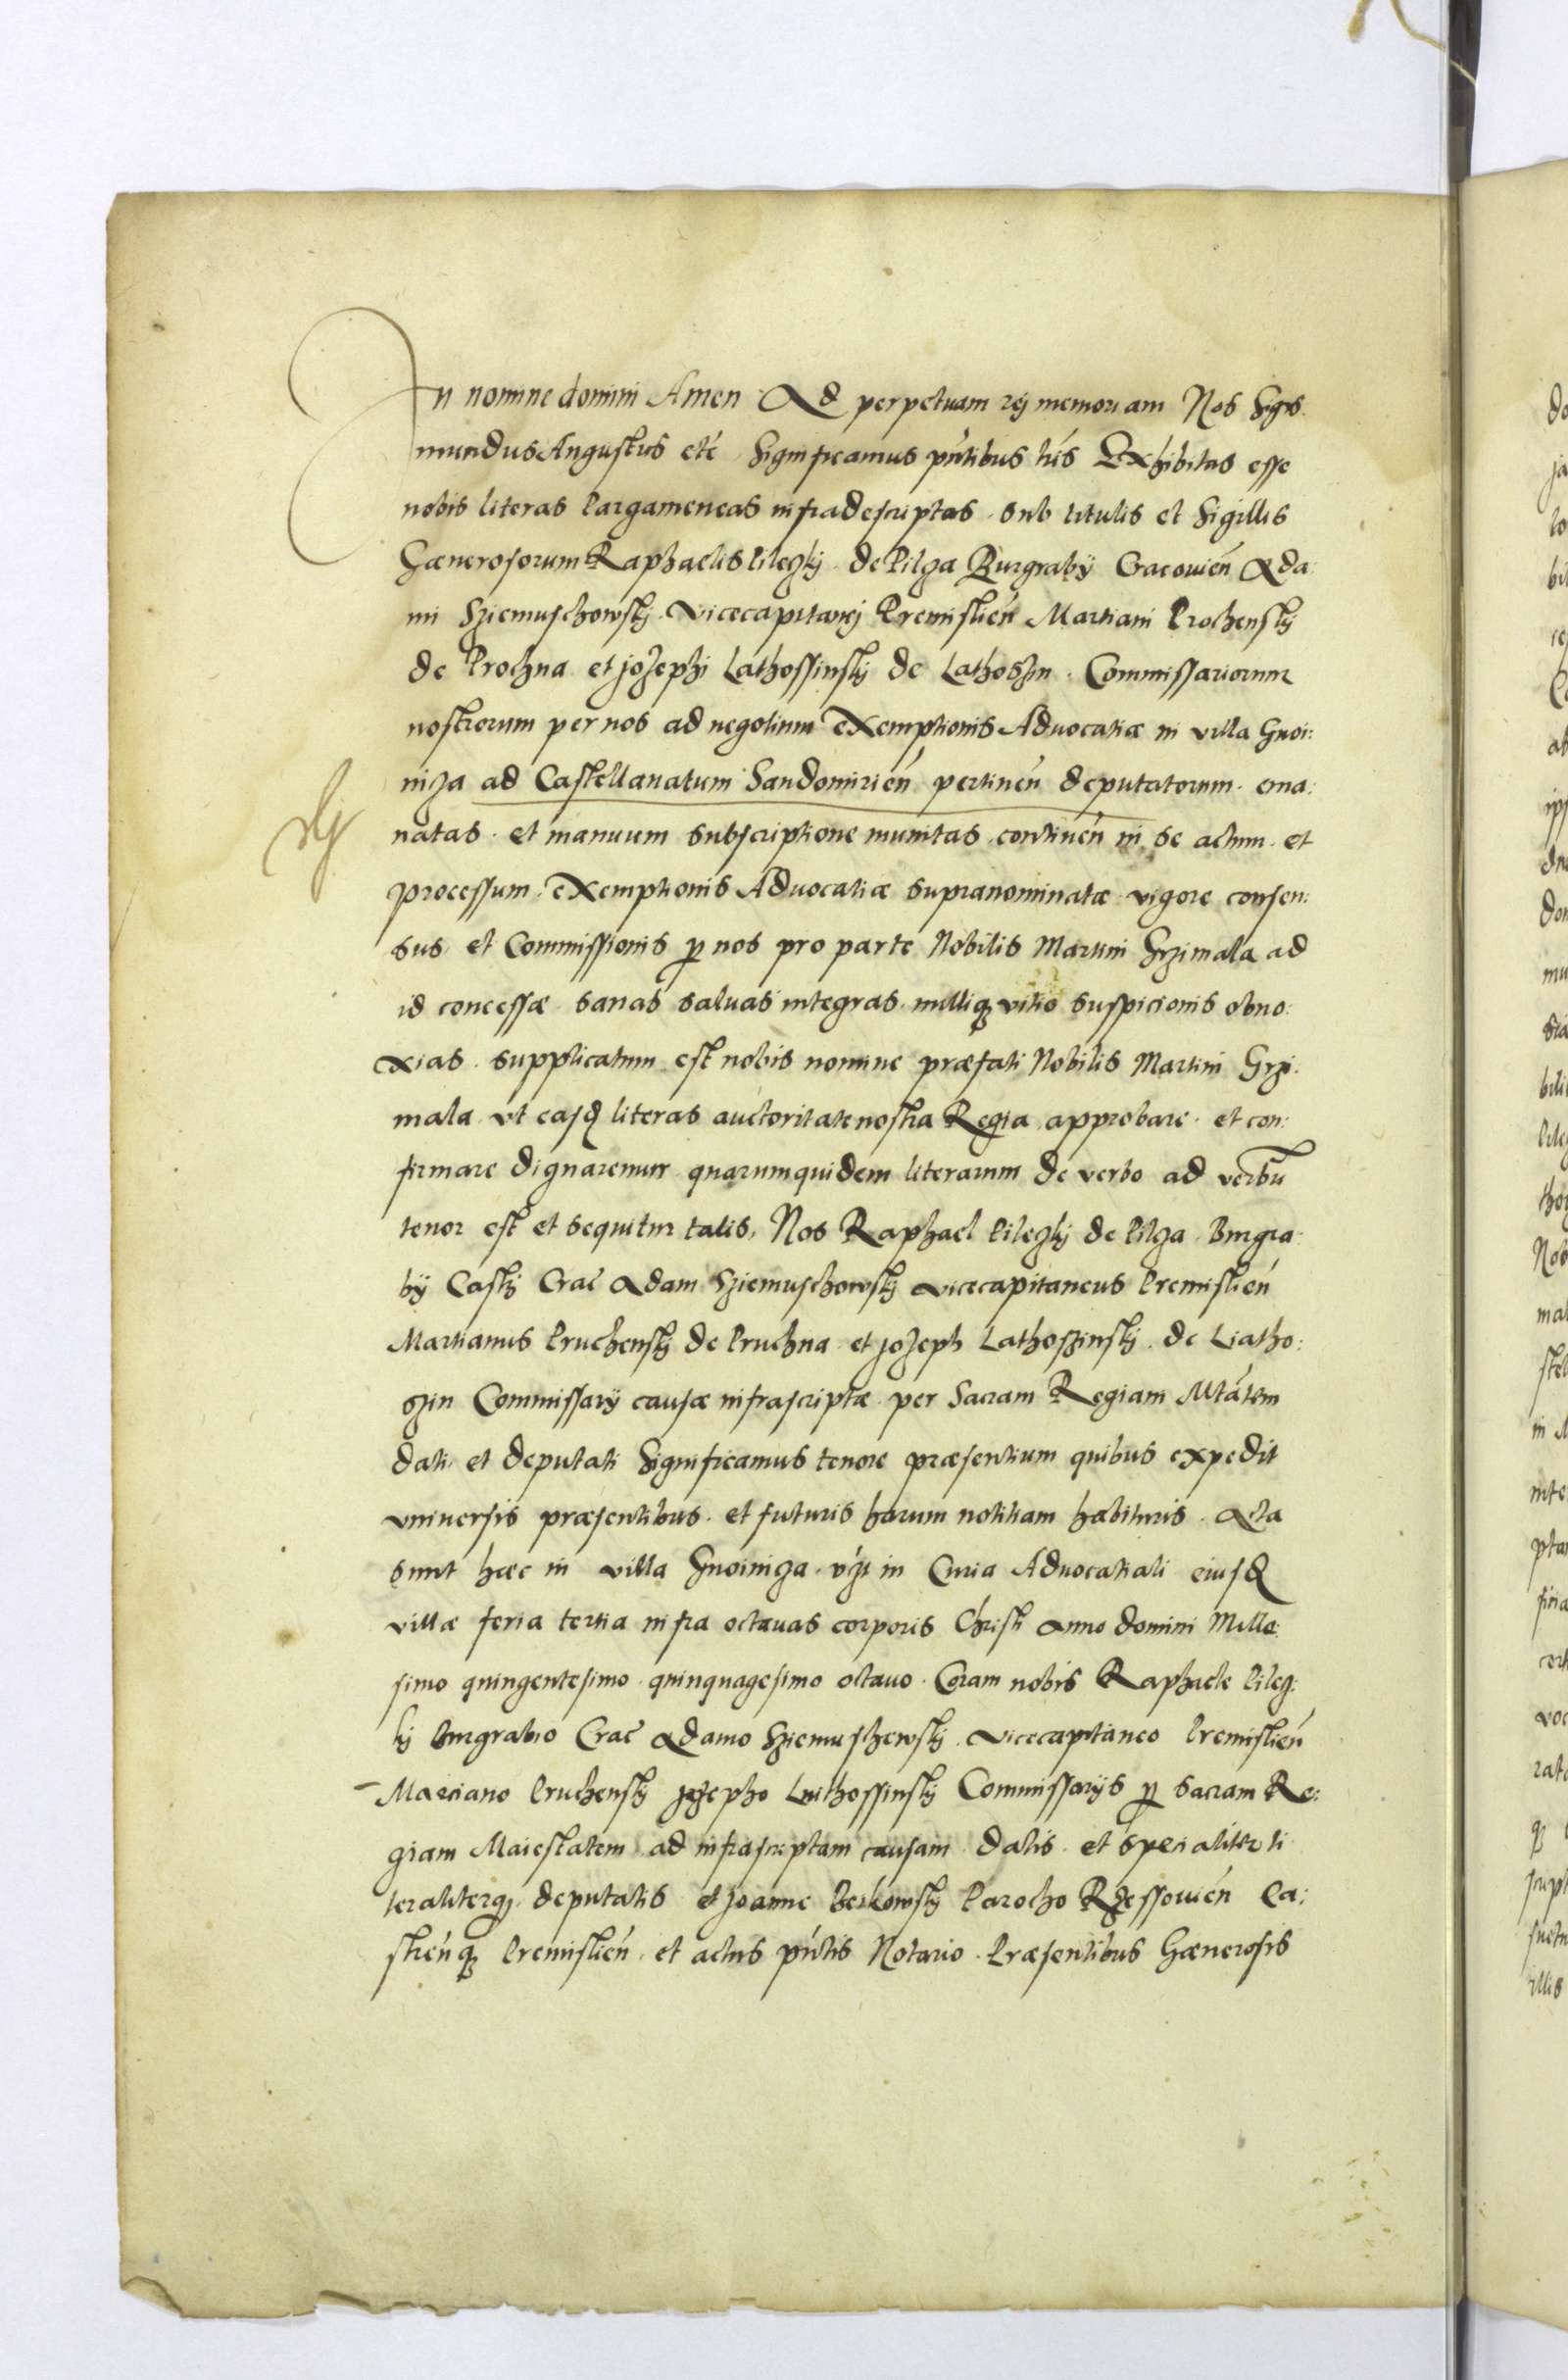 In nomine domini Amen Ad perpetuam rei memoriam Nos Sigis
mundus Augustus etc Significamus pñtibus lr̃is Exhibitas esse
nobis literas Pargameneas infradescriptas sub titulis et Sigillis
Gænerosorum Raphaelis Pileczkj de Pilcza Burgrabÿ Cracouień Ada
mi Sziemuschowskj Vicecapitanej Premislień Martiani Prochenskj
de Prochna et jozephi Lathossinskj de Lathoszin Commissariorum
nostrorum per nos ad negotium exemptionis Aduocatiæ in villa Gnoi:
nicza ad Castellanatum Sandomirień pertineń deputatorum ema:
natas et manuum subscriptione munitas contineń in se actum et
processum exemptionis Aduocatiæ supranominatæ vigore consen:
sus et Commissionis p nos pro parte Nobilis Martini Grzimala ad
id concessæ sanas saluas integras nulliq vitio suspicionis obno:
xias supplicatum est nobis nomine præfati Nobilis Martini Grzi:
mala vt easd literas auctoritate nostra Regia approbare et con:
firmare dignaremur quarumquidem literarum de verbo ad verbū
tenor est et sequitur talis, Nos Raphael Pileczkj de Pilcza Burgra
bÿ Castrj Crac Adam Sziemuschowskj vicecapitaneus Premislień
Martianus Pruchenskj de Pruchna et jozeph Lathoszinskj de Liatho:
szin Commissarÿ causæ infrascriptæ per Sacram Regiam Mtátem
dati et deputati Significamus tenore præsentium quibus expedit
vniuersis præsentibus et futuris harum notitiam habituris Acta
sunt hæc in villa Gnoinicza in Curia Aduocatiali eiusd
villæ feria tertia infra octauas corporis Christi anno domini Mille:
simo quingentesimo quinquagesimo octauo Coram nobis Raphaele Pilecz:
kj Burgrabio Crac Adamo Sziemuschewskj vicecapitaneo Premislień
Marciano Pruchenskj jozepho Lathossinskj Commissarÿs p sacram Re:
giam Maiestatem ad infrascriptam causam datis et specialiter li
teraliterq deputatis et joanne Berkowskj Parocho Rzessouień Ca:
streńq Premislień et actus pńtis Notario Præsentibus Gænerosis